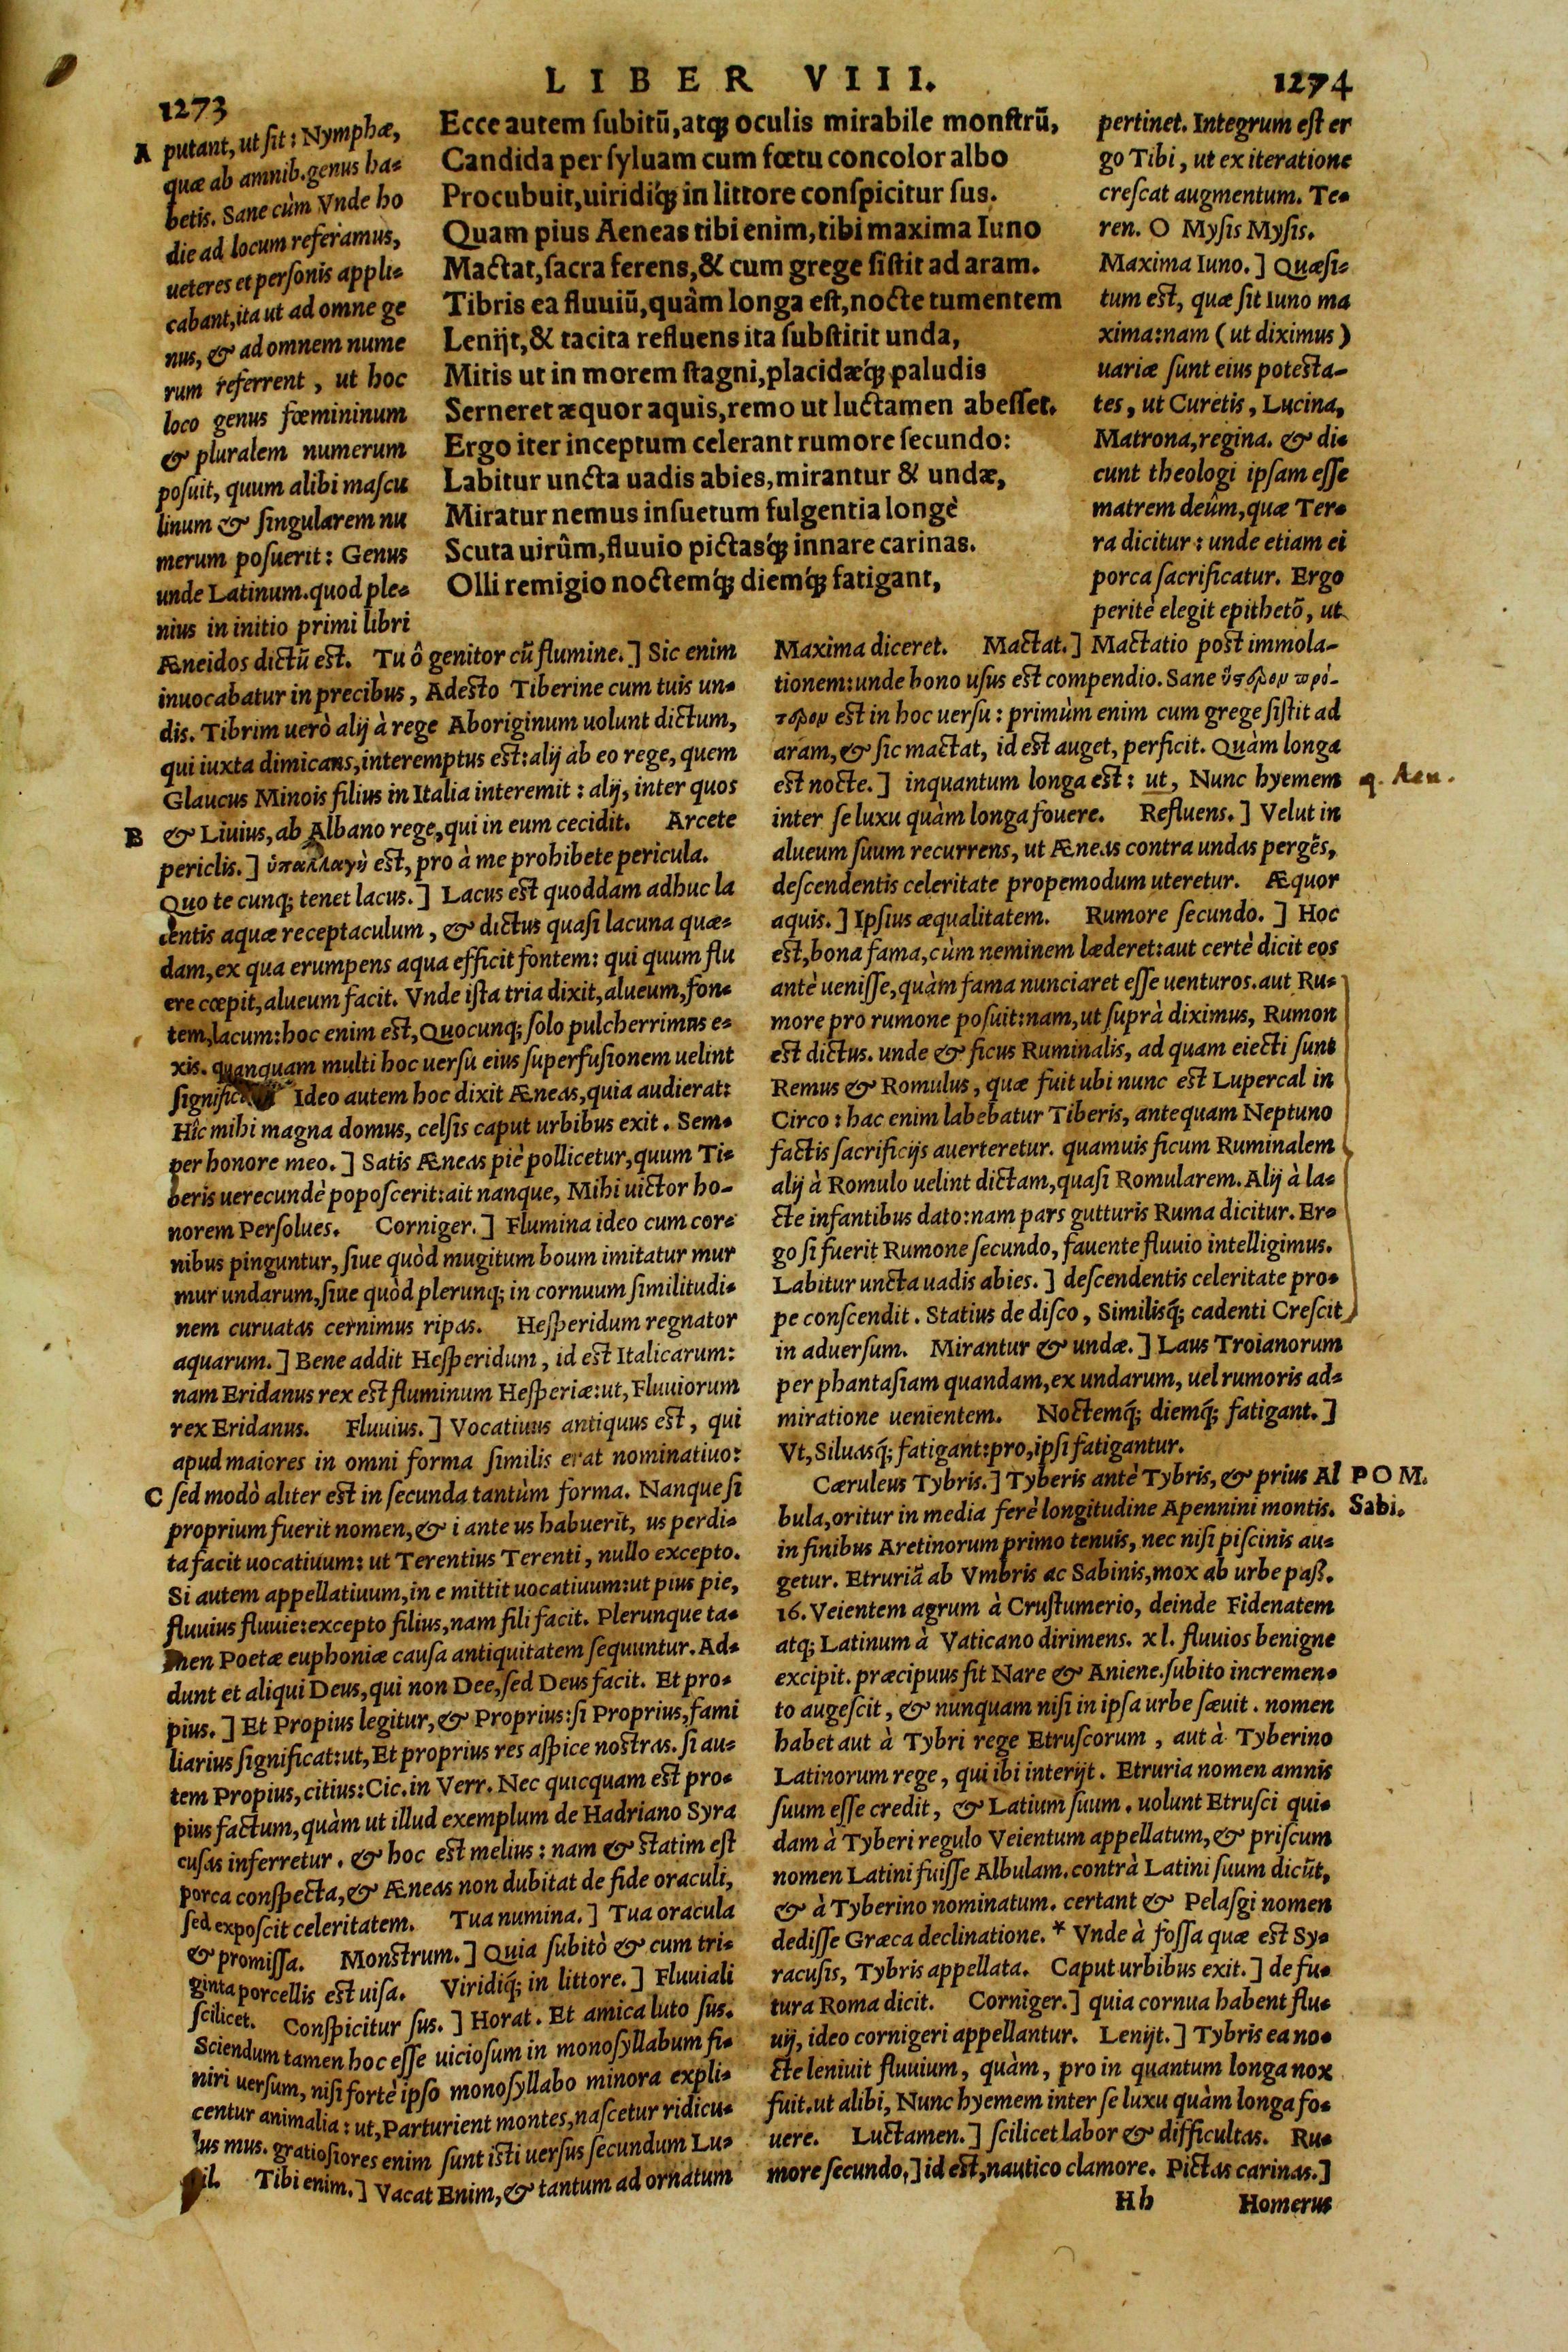 LIBER VIII.
1273
1274
Ecce autem subitũ, atq; oculis mirabile monstrũ,
Candida per syluam cum fœtu concolor albo
Procubuit, uiridiq́; in littore conspicitur sus.
Quam pius Aeneas tibi enim, tibi maxima Iuno
Mactat, sacra ferens, & cum grege sistit ad aram.
Tibris ea fluuiũ, quàm longa est, nocte tumentem
Lenijt, & tacita refluens ita substitit unda,
Mitis ut in morem stagni, placidæq́; paludis
Serneret æquor aquis, remo ut luctamen abesset.
Ergo iter inceptum celerant rumore secundo:
Labitur uncta uadis abies, mirantur & undæ,
Miratur nemus insuetum fulgentia longè
Scuta uirûm, fluuio pictasq́; innare carinas.
Olli remigio noctemq́; diemq́; fatigant,
A putant, ut sit: Nymphæ,
quæ ab amnib. genus ha-
betis. Sane cùm Vnde ho
die ad locum referamus,
ueteres et personis appli-
cabant, ita ut ad omne ge
nus, & ad omnem nume
rum referrent, ut hoc
loco genus fœmininum
& pluralem numerum
posuit, quum alibi mascu
linum & singularem nu
merum posuerit: Genus
unde Latinum. quod ple-
nius in initio primi libri
Æneidos dictũ est. Tu ô genitor cũ flumine.] Sic enim
inuocabatur in precibus, Adesto Tiberine cum tuis un-
dis. Tibrim uerò alij à rege Aboriginum uolunt dictum,
qui iuxta dimicans, interemptus est: alij ab eo rege, quem
Glaucus Minois filius in Italia interemit: alij, inter quos
B & Liuius, ab Albano rege, qui in eum cecidit. Arcete
periclis.] ὑπαλλαγὴ est, pro à me prohibete pericula.
Quo te cunq; tenet lacus.] Lacus est quoddam adhuc la
tentis aquæ receptaculum, & dictus quasi lacuna quæ-
dam, ex qua erumpens aqua efficit fontem: qui quum flu
ere cœpit, alueum facit. Vnde ista tria dixit, alueum, fon-
tem, lacum: hoc enim est, Quocunq; solo pulcherrimus e-
xis. quanquam multi hoc uersu eius superfusionem uelint
Ideo autem hoc dixit Æneas, quia audierat:
Hîc mihi magna domus, celsis caput urbibus exit. Sem-
per honore meo.] Satis Æneas piè pollicetur, quum Ti-
beris uerecundè poposcerit: ait nanque, Mihi uictor ho-
norem Persolues. Corniger.] Flumina ideo cum cor-
nibus pinguntur, siue quòd mugitum boum imitatur mur
mur undarum, siue quòd plerunq; in cornuum similitudi-
nem curuatas cernimus ripas. Hesperidum regnator
aquarum.] Bene addit Hesperidum, id est Italicarum:
nam Eridanus rex est fluminum Hesperiæ: ut, Fluuiorum
rex Eridanus. Fluuius.] Vocatiuus antiquus est, qui
apud maiores in omni forma similis erat nominatiuo:
C sed modò aliter est in secunda tantùm forma. Nanque si
proprium fuerit nomen, & i ante us habuerit, us perdi-
ta facit uocatiuum: ut Terentius Terenti, nullo excepto.
Si autem appellatiuum, in e mittit uocatiuum: ut pius pie,
fluuius fluuie: excepto filius, nam fili facit. Plerunque ta-
men Poetæ euphoniæ causa antiquitatem sequuntur. Ad-
dunt et aliqui Deus, qui non Dee, sed Deus facit. Et pro-
pius.] Et Propius legitur, & Proprius: si Proprius, fami
liarius significat: ut, Et proprius res aspice nostras. si au-
tem Propius, citius: Cic. in Verr. Nec quicquam est pro-
pius factum, quàm ut illud exemplum de Hadriano Syra
cusas inferretur. & hoc est melius: nam & statim est
porca conspecta, & Æneas non dubitat de fide oraculi,
sed exposcit celeritatem. Tua numina.] Tua oracula
& promissa. Monstrum.] Quia subitò & cum tri-
ginta porcellis est uisa. Viridiq́; in littore.] Fluuiali
scilicet. Conspicitur sus.] Horat. Et amica luto sus.
Sciendum tamen hoc esse uiciosum in monosyllabum fi-
niri uersum, nisi fortè ipso monosyllabo minora expli-
centur animalia: ut, Parturient montes, nascetur ridicu-
lus mus. gratiosiores enim sunt isti uersus secundum Lu-
cil. Tibi enim.] Vacat Enim, & tantum ad ornatum
pertinet. Integrum est er
go Tibi, ut ex iteratione
crescat augmentum. Te-
ren. O Mysis Mysis.
Maxima Iuno.] Quæsi-
tum est, quæ sit Iuno ma
xima: nam (ut diximus)
uariæ sunt eius potesta-
tes, ut Curetis, Lucina,
Matrona, regina. & di-
cunt theologi ipsam esse
matrem deûm, quæ Ter-
ra dicitur: unde etiam ei
porca sacrificatur. Ergo
peritè elegit epithetõ, ut
Maxima diceret. Mactat.] Mactatio post immola-
tionem: unde bono usus est compendio. Sane ὕστερον πρό-
τερον est in hoc uersu: primùm enim cum grege sistit ad
aram, & sic mactat, id est auget, perficit. Quàm longa
est nocte.] inquantum longa est: ut, Nunc hyemem
4. Aen.
inter se luxu quàm longa fouere. Refluens.] Velut in
alueum suum recurrens, ut Æneas contra undas pergẽs,
descendentis celeritate propemodum uteretur. Æquor
aquis.] Ipsius æqualitatem. Rumore secundo.] Hoc
est, bona fama, cùm neminem læderet: aut certè dicit eos
antè uenisse, quàm fama nunciaret esse uenturos. aut Ru-
more pro rumone posuit: nam, ut suprà diximus, Rumon
est dictus. unde & ficus Ruminalis, ad quam eiecti sunt
Remus & Romulus, quæ fuit ubi nunc est Lupercal in
Circo: hac enim labebatur Tiberis, antequam Neptuno
factis sacrificijs auerteretur. quamuis ficum Ruminalem
alij à Romulo uelint dictam, quasi Romularem. Alij à la-
cte infantibus dato: nam pars gutturis Ruma dicitur. Er-
go si fuerit Rumone secundo, fauente fluuio intelligimus.
Labitur uncta uadis abies.] descendentis celeritate pro-
pe conscendit. Statius de disco, Similisq́; cadenti Crescit
in aduersum. Mirantur & undæ.] Laus Troianorum
per phantasiam quandam, ex undarum, uel rumoris ad-
miratione uenientem. Noctemq́; diemq́; fatigant.]
Vt, Siluasq́; fatigant: pro, ipsi fatigantur.
Cæruleus Tybris.] Tyberis antè Tybris, & prius Al
POM.
bula, oritur in media ferè longitudine Apennini montis.
Sabi.
in finibus Aretinorum primo tenuis, nec nisi piscinis au-
getur. Etruriã ab Vmbris ac Sabinis, mox ab urbe paß.
16. Veientem agrum à Crustumerio, deinde Fidenatem
atq; Latinum à Vaticano dirimens. xl. fluuios benigne
excipit. præcipuus fit Nare & Aniene. subito incremen-
to augescit, & nunquam nisi in ipsa urbe sæuit. nomen
habet aut à Tybri rege Etruscorum, aut à Tyberino
Latinorum rege, qui ibi interijt. Etruria nomen amnis
suum esse credit, & Latium suum. uolunt Etrusci qui-
dam à Tyberi regulo Veientum appellatum, & priscum
nomen Latini fuisse Albulam. contrà Latini suum dicũt,
& à Tyberino nominatum. certant & Pelasgi nomen
dedisse Græca declinatione. * Vnde à fossa quæ est Sy-
racusis, Tybris appellata. Caput urbibus exit.] de fu-
tura Roma dicit. Corniger.] quia cornua habent flu-
uij, ideo cornigeri appellantur. Lenijt.] Tybris ea no-
cte leniuit fluuium, quàm, pro in quantum longa nox
fuit. ut alibi, Nunc hyemem inter se luxu quàm longa fo-
uere. Luctamen.] scilicet labor & difficultas. Ru-
more secundo,] id est, nautico clamore. Pictas carinas.]
Hh Homerus